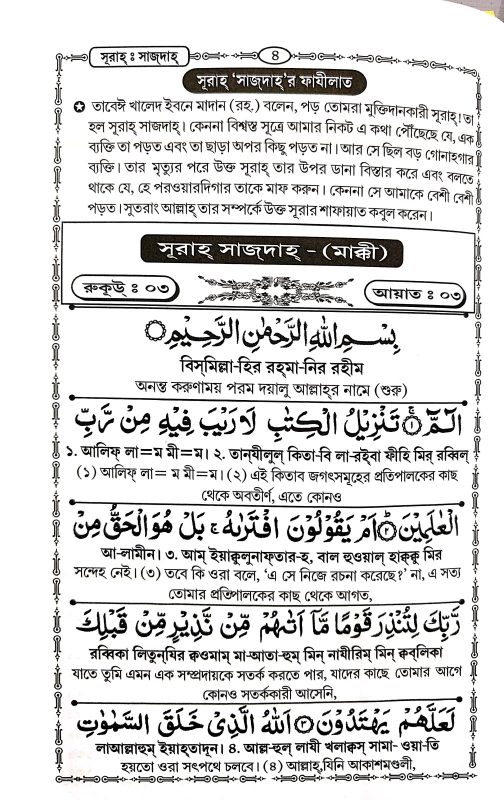 সূরাহ্ ঃ সাজ্‌দাহ্
৪
সূরাহ্ 'সাজ্‌দাহ্'র ফাযীলাত
✪ তাবেঈ খালেদ ইবনে মাদান (রহ.) বলেন, পড় তোমরা মুক্তিদানকারী সূরাহ্! তা
হল সূরাহ্ সাজদাহ্। কেননা বিশ্বস্ত সূত্রে আমার নিকট এ কথা পৌঁছেছে যে, এক
ব্যক্তি তা পড়ত এবং তা ছাড়া অপর কিছু পড়ত না। আর সে ছিল বড় গোনাহগার
ব্যক্তি। তার মৃত্যুর পরে উক্ত সূরাহ্ তার উপর ডানা বিস্তার করে এবং বলতে
থাকে যে, হে পরওয়ারদিগার তাকে মাফ করুন। কেননা সে আমাকে বেশী বেশী
পড়ত। সুতরাং আল্লাহ্ তার সম্পর্কে উক্ত সূরার শাফায়াত কবুল করেন।
সূরাহ্ সাজ্‌দাহ্ - (মাক্কী)
রুকূউ ঃ ০৩
আয়াত ঃ ০৩
بِسْمِ اللهِ الرَّحْمٰنِ الرَّحِيْمِ
বিস্‌মিল্লা-হির রহ্‌মা-নির রহীম
অনন্ত করুণাময় পরম দয়ালু আল্লাহ্‌র নামে (শুরু)
الٓمّٓ ① تَنْزِيْلُ الْكِتٰبِ لَا رَيْبَ فِيْهِ مِنْ رَّبِّ
১. আলিফ্ লা=ম মী=ম। ২. তান্‌যীলুল্ কিতা-বি লা-রইবা ফীহি মির্ রব্বিল্
(১) আলিফ্ লা= ম মী=ম। (২) এই কিতাব জগৎসমূহের প্রতিপালকের কাছ
থেকে অবতীর্ণ, এতে কোনও
الْعٰلَمِيْنَ ② اَمْ يَقُوْلُوْنَ افْتَرٰىهُ ۚ بَلْ هُوَ الْحَقُّ مِنْ
আ-লামীন। ৩. আম্ ইয়াক্বুলূনাফ্‌তার-হ, বাল হুওয়াল্ হাক্বক্বু মির
সন্দেহ নেই। (৩) তবে কি ওরা বলে, 'এ সে নিজে রচনা করেছে?' না, এ সত্য
তোমার প্রতিপালকের কাছ থেকে আগত,
رَّبِّكَ لِتُنْذِرَ قَوْمًا مَّآ اَتٰىهُمْ مِّنْ نَّذِيْرٍ مِّنْ قَبْلِكَ
রব্বিকা লিতুন্‌যির ক্বওমাম্ মা-আতা-হুম্ মিন্ নাযীরিম্ মিন্ ক্বব্‌লিকা
যাতে তুমি এমন এক সম্প্রদায়কে সতর্ক করতে পার, যাদের কাছে তোমার আগে
কোনও সতর্ককারী আসেনি,
لَعَلَّهُمْ يَهْتَدُوْنَ ③ اَللهُ الَّذِيْ خَلَقَ السَّمٰوٰتِ
লাআল্লাহুম্ ইয়াহ্‌তাদূন। ৪. আল্ল-হুল্ লাযী খলাক্বস্ সামা- ওয়া-তি
হয়তো ওরা সৎপথে চলবে। (৪) আল্লাহ্, যিনি আকাশমণ্ডলী,